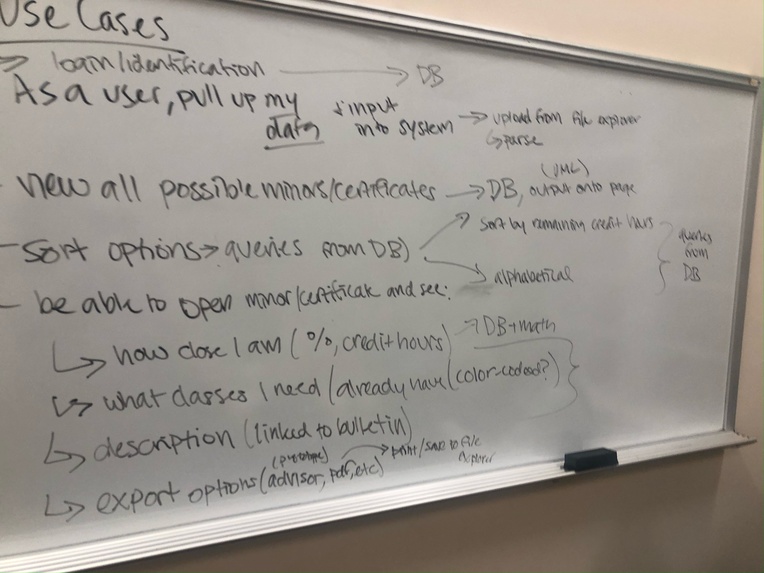 Use Cases
→ login/identification → DB
As a user, pull up my data + input into system → upload from file explorer
↳ parse
- view all possible minors/certificates → DB, (UML) output onto page
- sort options → queries from DB)
→ sort by remaining credit hours
→ alphabetical
} queries from DB
- be able to open minor/certificate and see:
↳ how close I am (%, credit hours) → DB + math
↳ what classes I need (already have (color-coded?)
↳ description (linked to bulletin)
↳ export options (advisor, pdf, etc) → print/save to file explorer
(prototype)